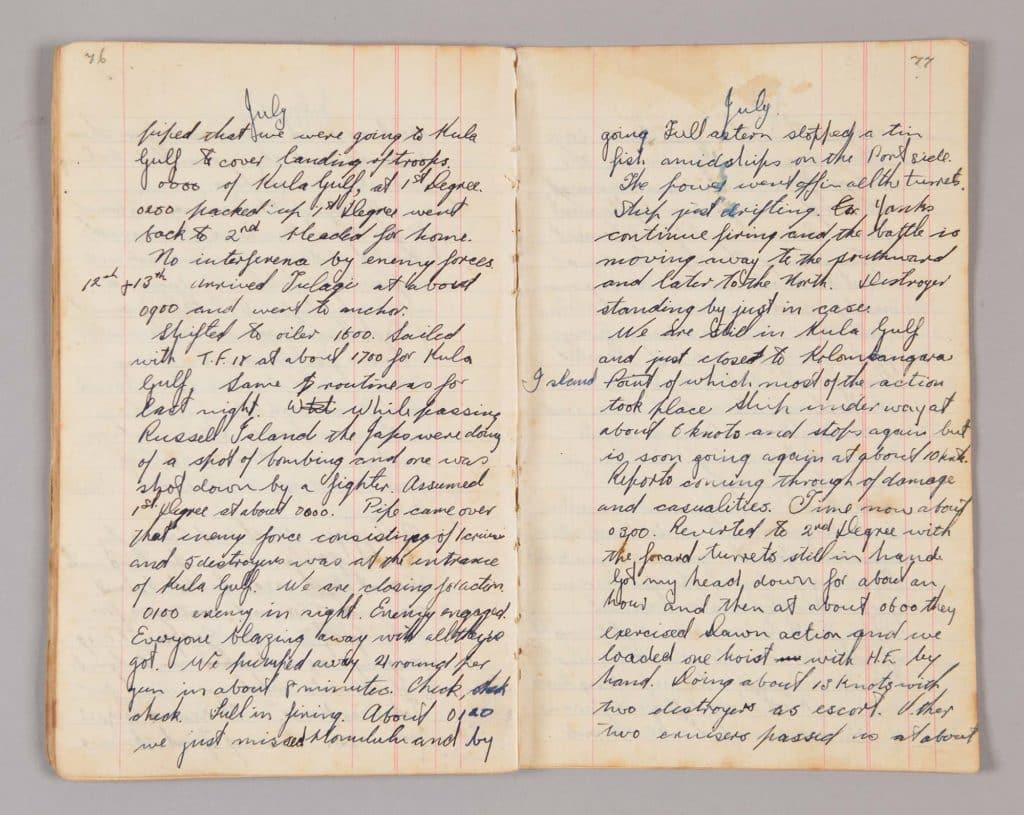 76
July
piped that we were going to Kula
Gulf to cover landing of troops.
0000 of Kula Gulf, at 1st Degree.
0200 packed up 1st Degree went
back to 2nd Headed for home.
No interference by enemy forces
12th + 13th arrived Tulagi at about
0900 and went to anchor.
Shifted to oiler 1600. Sailed
with T.F. 18 at about 1700 for Kula
Gulf, Same routine as for
last night. While passing
Russell Island the Japs were doing
of a spot of bombing and one was
shot down by a fighter. Assumed
1st Degree at about 0000. Pipe came over
that enemy force consisting of 1 cruiser
and 5 destroyers was at the entrance
of Kula Gulf. We are closing for action.
0100 enemy in sight. Enemy engaged.
Everyone blazing away with all they've
got. We pumped away 21 round per
gun in about 8 minutes. Check, check
check. Lull in firing. About 0120
we just missed Honolulu and by
77
July.
going Full astern stopped a tin
fish amidships on the Port side.
The power went off in all the turrets.
Ship just drifting. Yanks
continue firing and the battle is
moving away to the southward
and later to the North. Destroyer
standing by just in case.
We are Still in Kula Gulf
and just closest to Kolombangara
Island Point of which most of the action
took place Ship under way at
about 6 knots and stops again but
is soon going again at about 10 knts.
Reports coming through of damage
and casualities. Time now about
0300. Reverted to 2nd Degree with
the forard turrets still in hand
Got my head, down for about an
hour and then at about 0600 they
exercised Dawn action and we
loaded one hoist with H.E. by
hand. Doing about 13 Knots with
two destroyers as escort. Other
two cruisers passed us at about